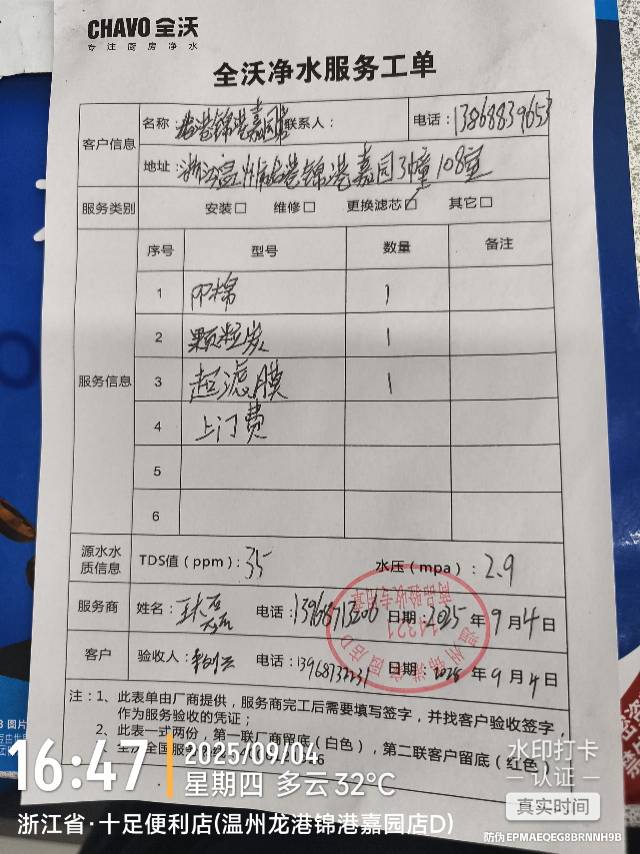 CHAVO 全沃
专注厨房净水
全沃净水服务工单
客户信息
名称：龙港锦港嘉园店 联系人： 电话：13868839653
地址：浙江温州龙港锦港嘉园3幢108室
服务类别 安装□ 维修□ 更换滤芯☑ 其它□
服务信息
序号 型号 数量 备注
1 PP棉 1
2 颗粒炭 1
3 超滤膜 1
4 上门费
5
6
源水水质信息 TDS值（ppm）：35 水压（mpa）：2.9
服务商 姓名： 电话：13968713206 日期：2025年9月4日
客户 验收人： 电话： 日期：2025年9月4日
注：1、此表单由厂商提供，服务商完工后需要填写签字，并找客户验收签字，
作为服务验收的凭证；
2、此表一式两份，第一联厂商留底（白色），第二联客户留底（红色）
全沃全国服务
商品验收专用章
16:47
2025/09/04
星期四 多云 32℃
浙江省·十足便利店(温州龙港锦港嘉园店D)
水印打卡
认证
真实时间
防伪 EPMAEQEG8BRNNH9B